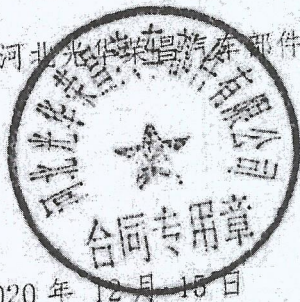 河北光华荣昌汽车部件
河北光华荣昌汽车部件有限公司
合同专用章
020 年 12 月 15 日